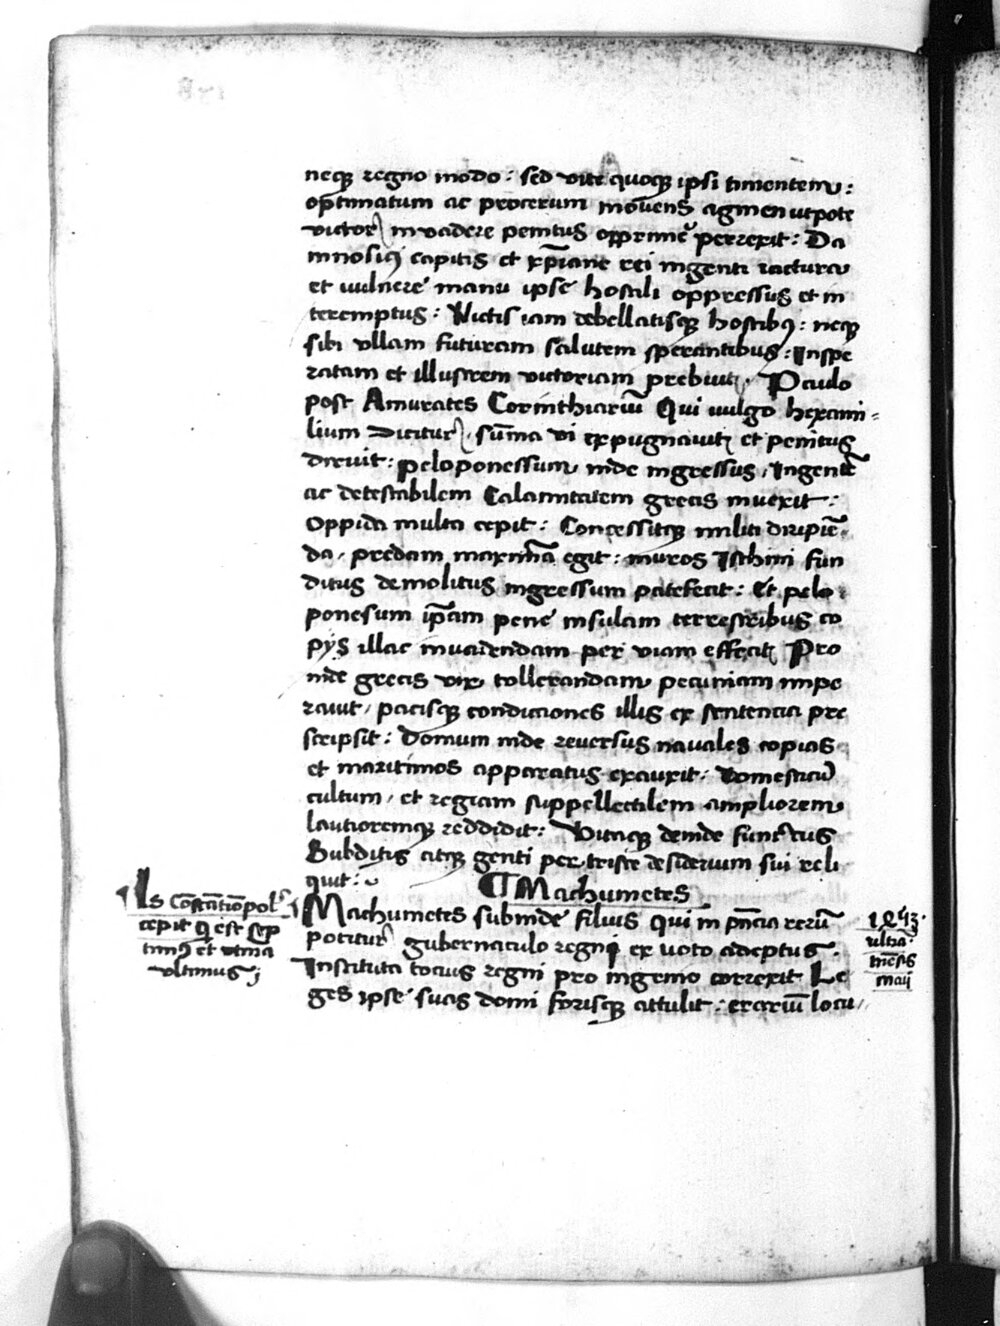 neq regno modo : sed vite quoq ipsi timentem :
optimatum ac procerum movens agmen utpote
victor invadere penitus opprimē perrexit : Da
mnosiq capitis et xpiane rei ingenti iactura
et vulnere manu ipse hostili oppressus et in
teremptus : Victis iam debellatisq hostibꝰ : neq
sibi vllam futuram salutem sperantibus : Inspe
ratam et illustrem victoriam prebuit . Paulo
post Amurates Corinthiarū Qui vulgo hexami-
lium Dicitur , sūma vi expugnavit et penitus
diruit : peloponessum inde ingressus , Ingentē
ac detestabilem Calamitatem grecis invexit :
Oppida multa cepit : Concessitq militi diripiē
da , predam maximā egit : muros Isthmi fun
ditus demolitus ingressum patefecit : Et pelo
ponesum ip̄am pene insulam terrestribus co
pys illac invadendam per viam effecit Pro
inde grecis vix tollerandam pecuniam impe
ravit , pacisq condiciones illis ex sentencia pre
scripsit : Domum inde reversus navales copias
et maritimos apparatus exauxit : Domesticū
cultum , et regiam suppellectilem ampliorem
lautioremq reddidit : Vitaq deinde functus
Subditis atq genti per triste desiderium sui reli
quit :
¶ Machumetes
Is Cōstātiopol'
cepit q est sep
timꝰ et
vltimus ;
Machumetes subinde filius Qui in p̄ncia rerū
potitur gubernaculo regni ex voto adeptus .
Instituta tocius regni pro ingenio correxit Le
ges ipse suas domi forisq attulit : erariū locu
vltia
mēsis
maij